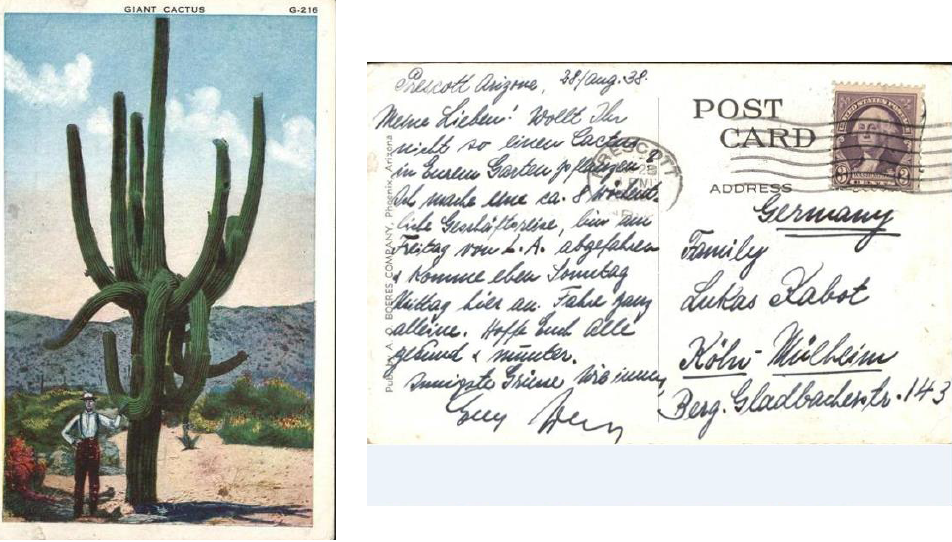 GIANT CACTUS G-216
Prescott Arizona, 28/Aug. 38.
Meine Lieben! Wollt Ihr
nicht so einen Cactus
in Eurem Garten pflanzen?
Ich mache eine ca. 8 wöchent-
liche Geschäftsreise, bin am
Freitag von L.A. abgefahren
& komme eben Sonntag
Mittag hier an. Fahre ganz
alleine. Hoffe Euch alle
gesund & munter.
Innigste Grüsse wie immer
Euer
Pub. by A. O. BOERES COMPANY, Phoenix, Arizona
PRESCOTT
POST
CARD
UNITED STATES POSTAGE
3 3
ADDRESS
Germany
Family
Lukas Kabot
Köln-Mülheim
Berg. Gladbacherstr. 143